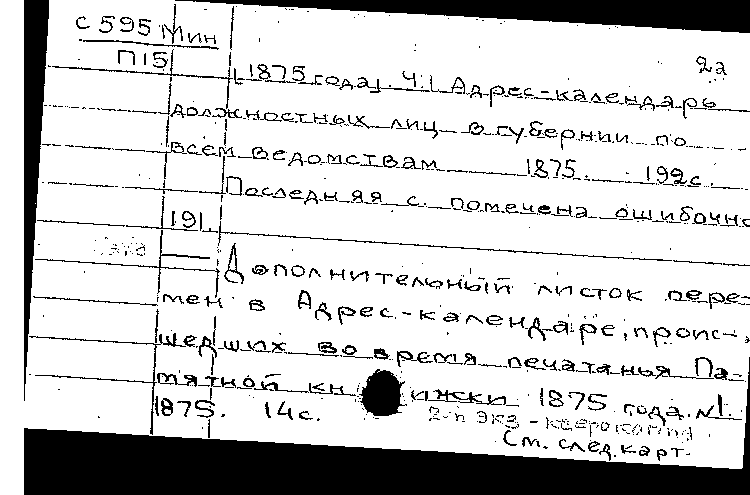 с 595 Мин
П15
2а
[1875 года]. Ч.1 Адрес-календарь
должностных лиц в губернии по
всем ведомствам 1875. 192с.
Последняя с. помечена ошибочно
191.
Дополнительный листок пере-
мен в Адрес-календаре, проис-,
шедших во время печатанья Па-
мятной кн ижки 1875 года. №1.
1875. 14с.
2-й экз - ксерокопия
См. след. карт.